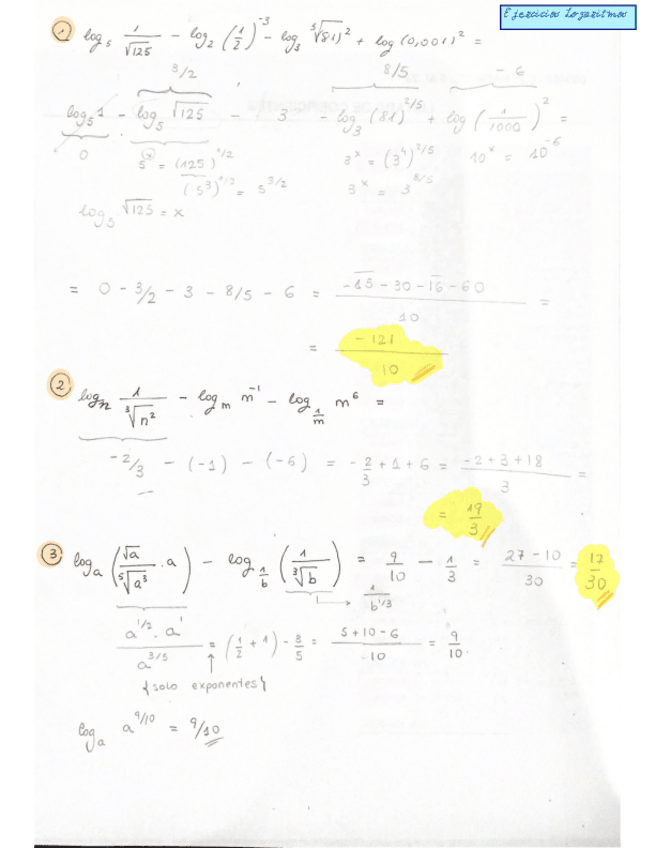 Ejercicios Logaritmos
1 log₅ 1/√125 - log₂ (1/2)⁻³ - log₃ ⁵√(81)² + log (0,001)² =
3/2 8/5 - 6
log₅ 1 - log₅ √125 - 3 - log₃ (81)^2/5 + log (1/1000)² =
0 5ˣ = (125)^1/2 3ˣ = (3⁴)^2/5 10ˣ = 10⁻⁶
(5³)^1/2 = 5^3/2 3ˣ = 3^8/5
log₅ √125 = x
= 0 - 3/2 - 3 - 8/5 - 6 = (-15 - 30 - 16 - 60)/10 =
= -121/10
2 logₙ 1/³√n² - logₘ m⁻¹ - log_1/m m⁶ =
-2/3 - (-1) - (-6) = -2/3 + 1 + 6 = (-2 + 3 + 18)/3 =
= 19/3
3 logₐ (√a/⁵√a³ . a) - log_1/b (1/³√b) = 9/10 - 1/3 = (27 - 10)/30 = 17/30
1/b^1/3
(a^1/2 . a¹)/a^3/5 = (1/2 + 1) - 3/5 = (5 + 10 - 6)/10 = 9/10.
{solo exponentes}
logₐ a^9/10 = 9/10